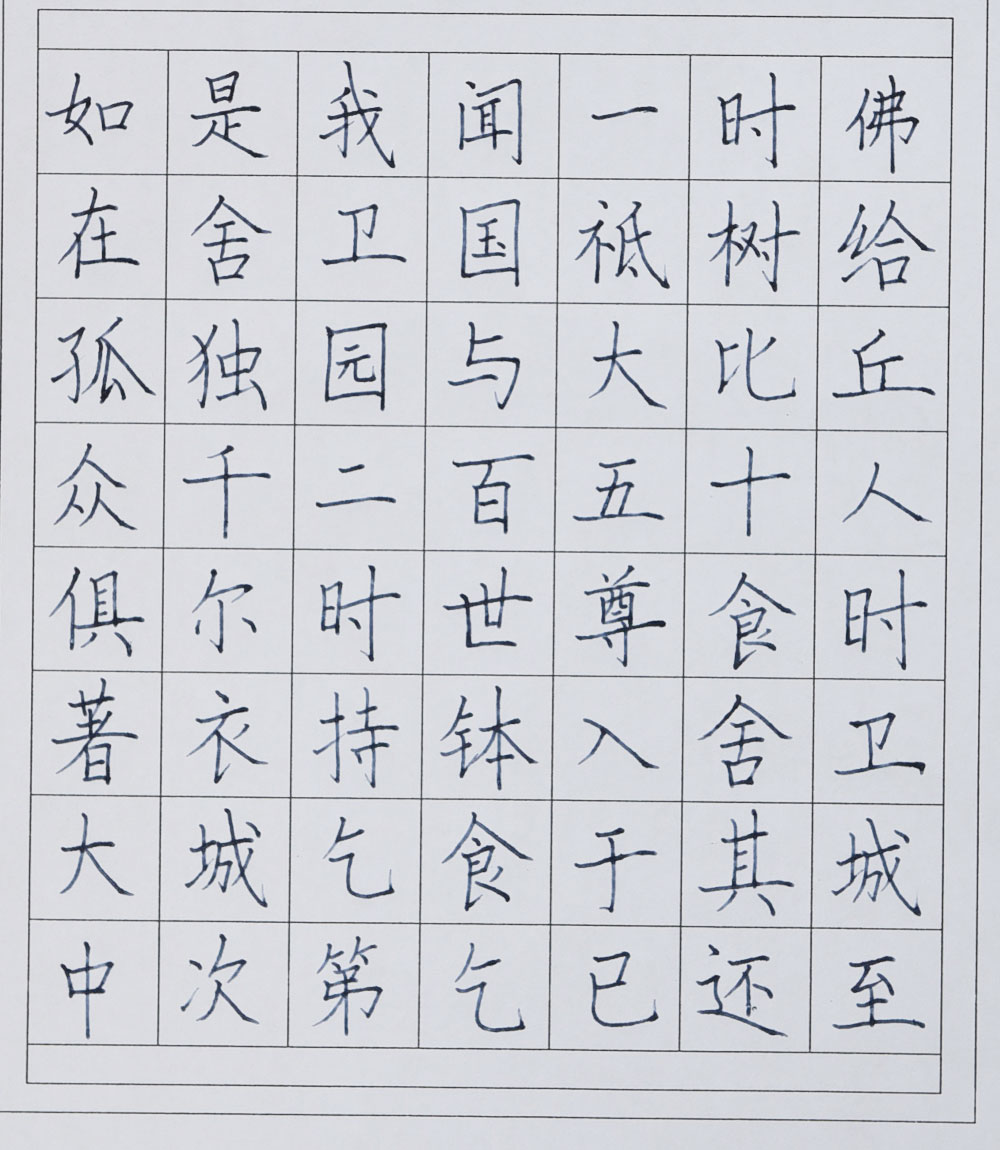 如是我闻一时佛
在舍卫国祗树给
孤独园与大比丘
众千二百五十人
俱尔时世尊食时
著衣持钵入舍卫
大城乞食于其城
中次第乞已还至